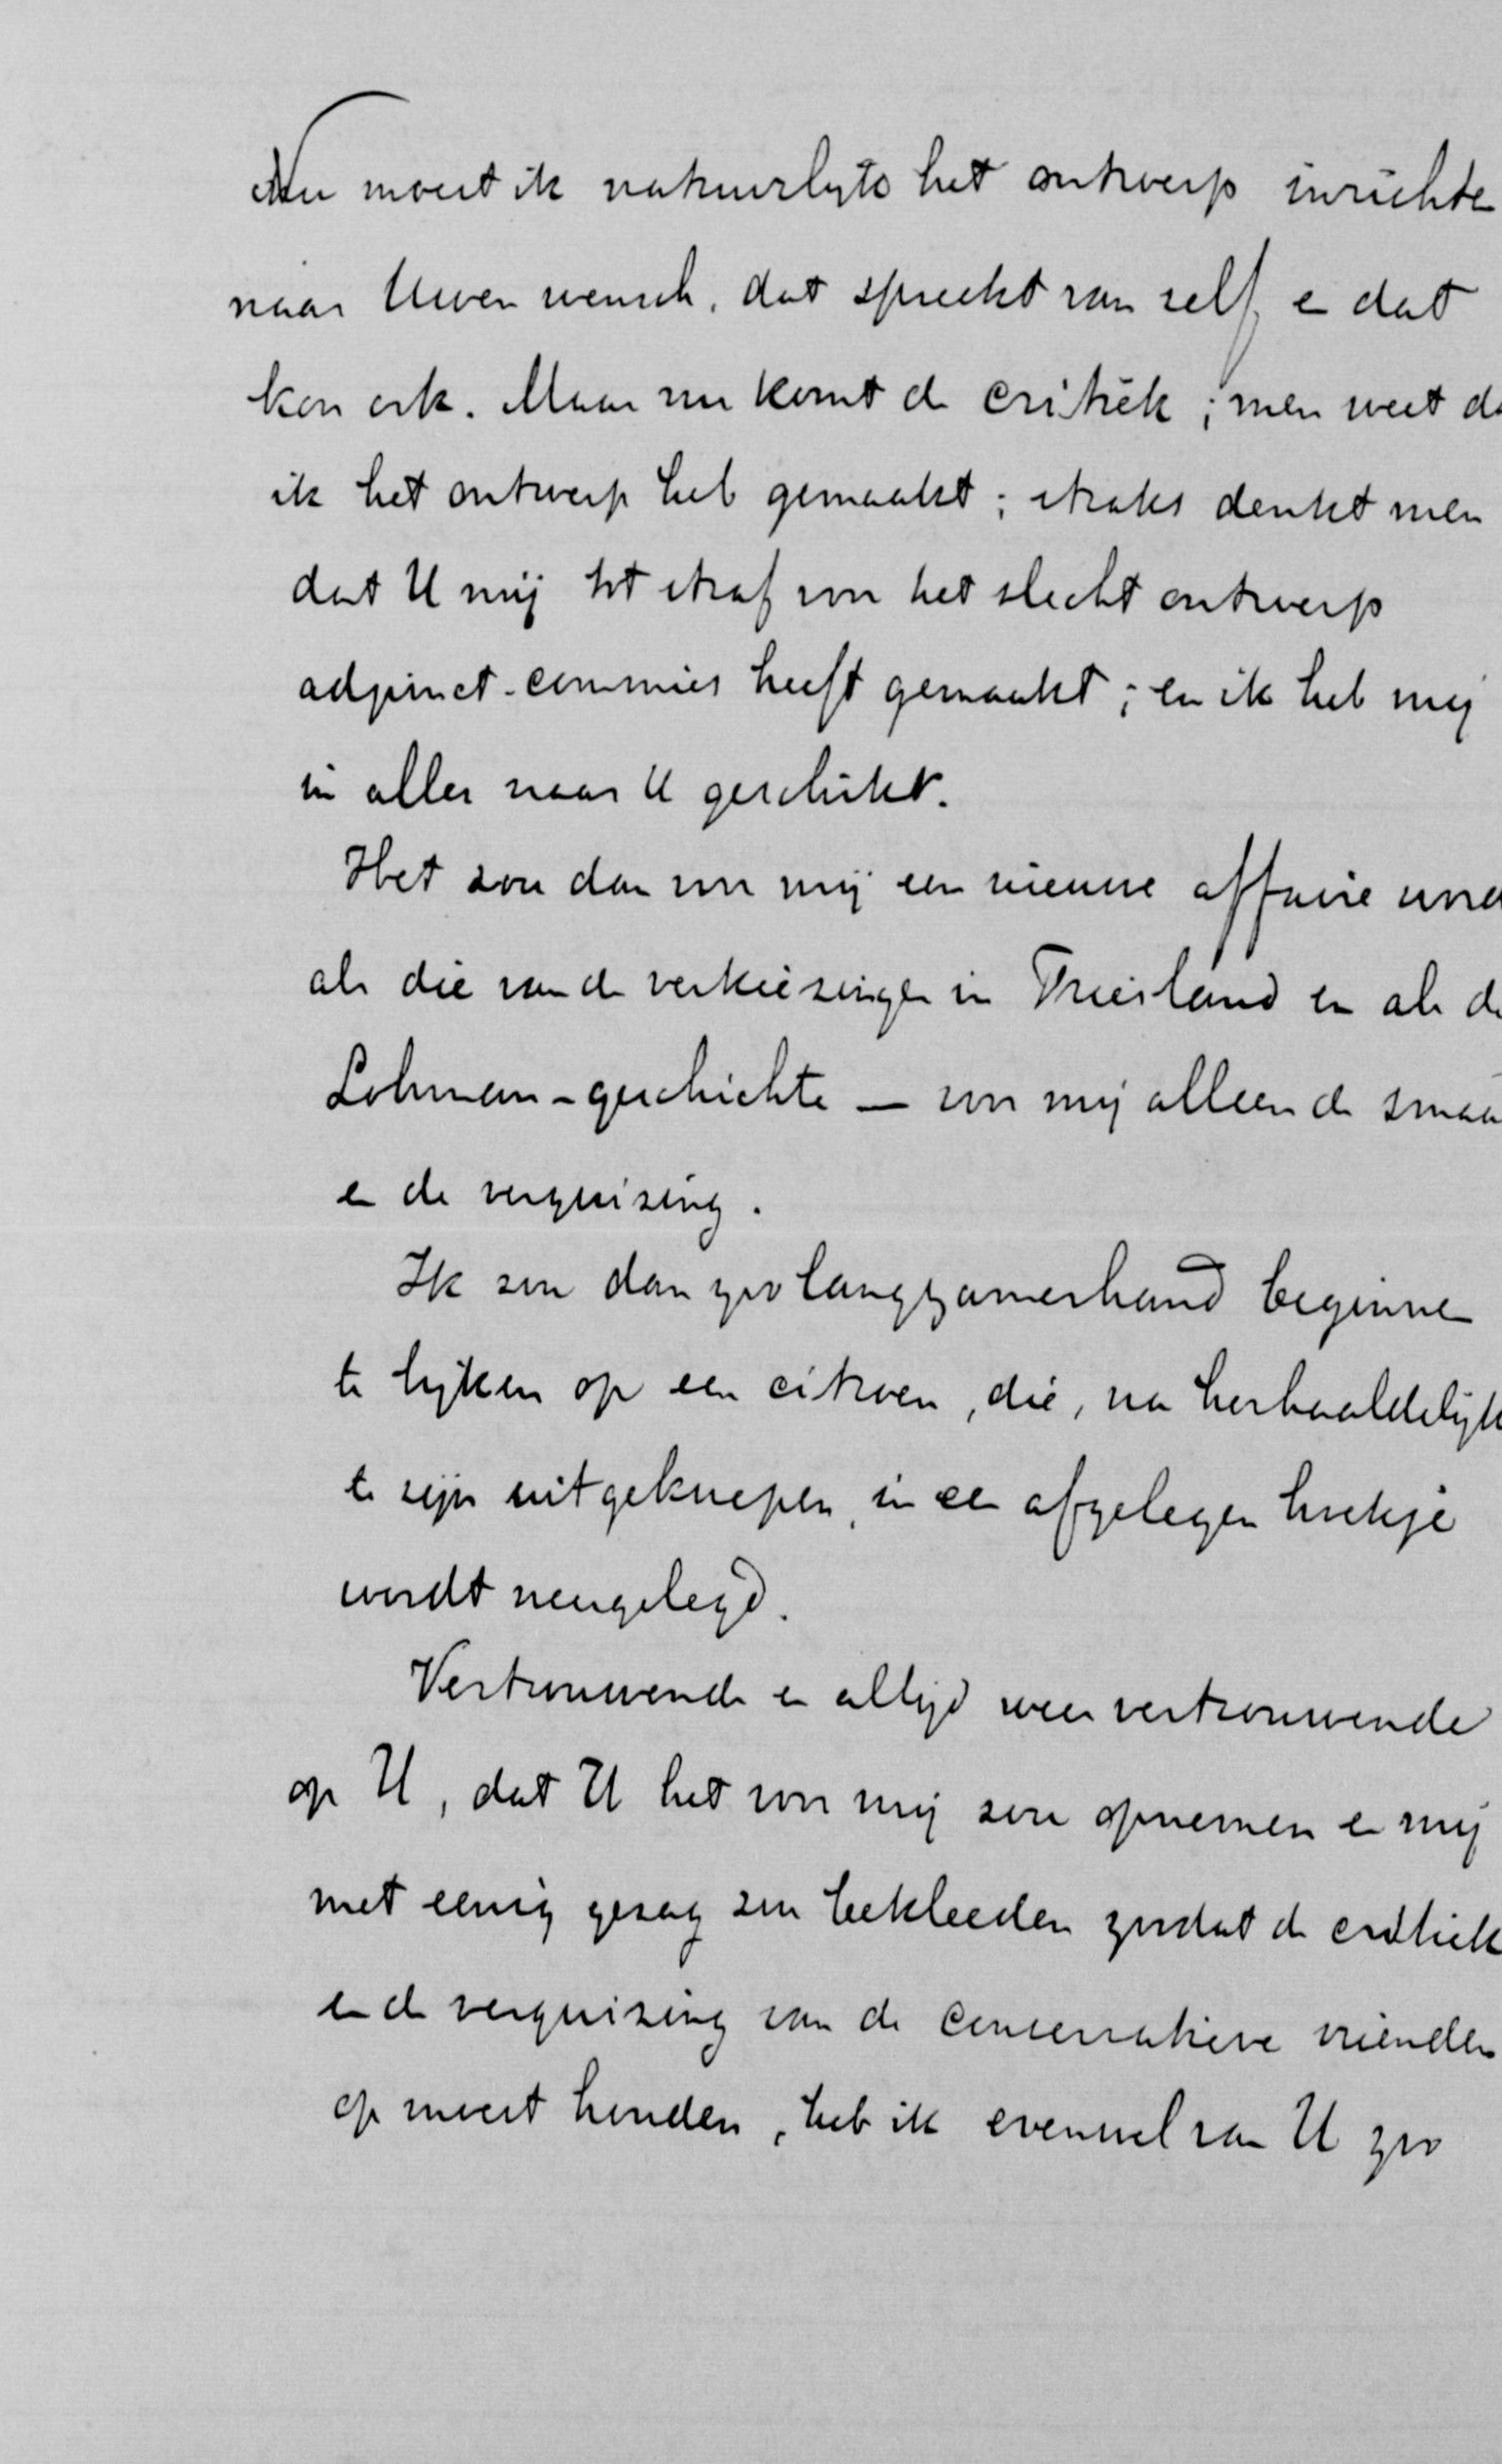 Nu moest ik natuurlijk het ontwerp inrichte
naar Uwen wensch, dat spreekt van zelf, e dat
kon ook. Maar nu komt de critiek; men weet da
ik het ontwerp heb gemaakt; straks denkt men
dat U mij tot straf voor het slecht ontwerp
adjunct-commies heeft gemaakt; en ik heb mij
in alles naar U geschikt.
Het zou dan voor mij een nieuwe affaire word
als die van de verkiezingen in Friesland en als de
Lohman-geschichte — voor mij alleen de smaa
e de verguizing.
Ik zou dan zoo langzamerhand beginne
te lijken op een citroen, die, na herhaaldelijk
te zijn uitgeknepen, in een afgelegen hoekje
wordt neergelegd.
Vertrouwende e altijd weer vertrouwende
op U, dat U het voor mij zou opnemen e mij
met eenig gezag zou bekleeden zoodat de critiek
en de verguizing van de conservatieve vrienden
op moest houden, heb ik evenwel van U zoo